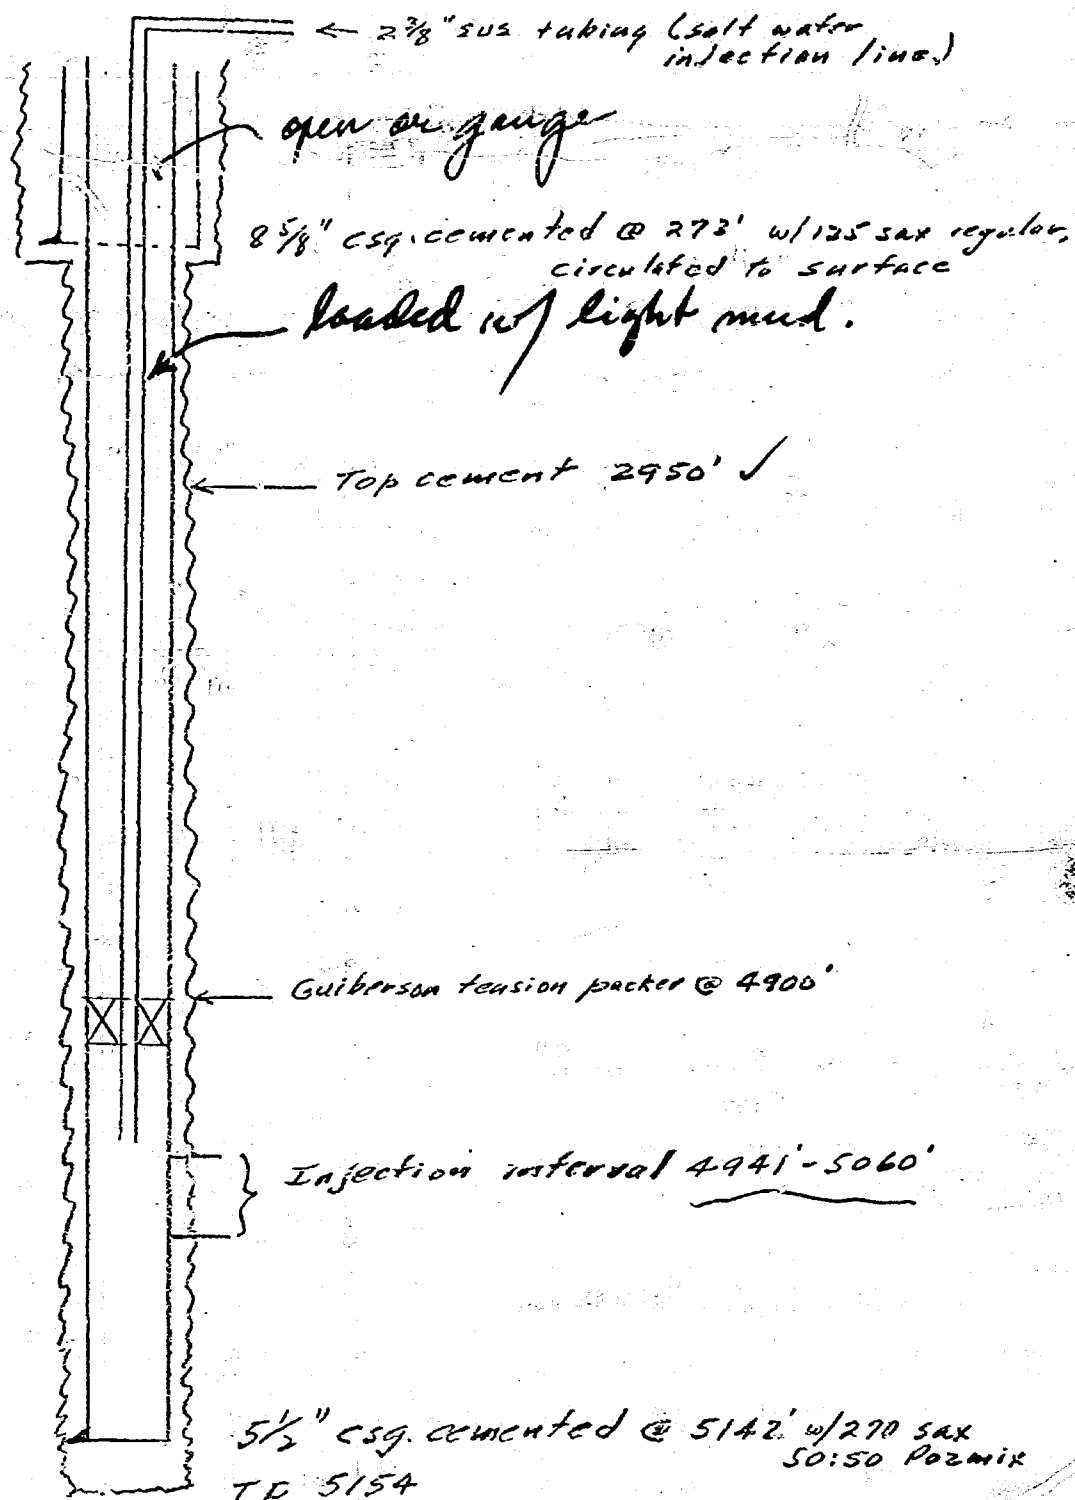 ← 2 3/8" sus tubing (salt water
injection line.)
open or gauge
8 5/8" csg. cemented @ 273' w/125 sax regular,
circulated to surface
loaded w/ light mud.
Top cement 2950' ✓
Guiberson tension packer @ 4900'
Injection interval 4941'-5060'
5 1/2" csg. cemented @ 5142' w/270 sax
50:50 Pozmix
TD 5154